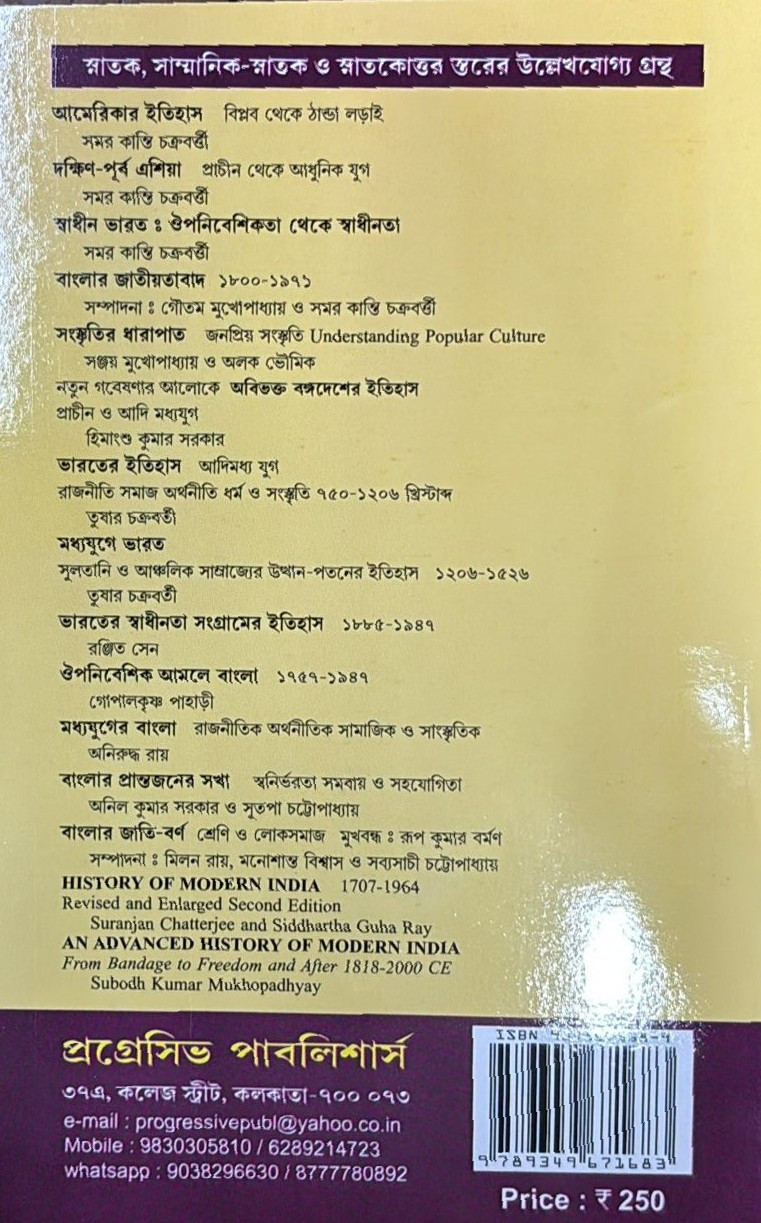 স্নাতক, সাম্মানিক-স্নাতক ও স্নাতকোত্তর স্তরের উল্লেখযোগ্য গ্রন্থ
আমেরিকার ইতিহাস বিপ্লব থেকে ঠান্ডা লড়াই
সমর কান্তি চক্রবর্ত্তী
দক্ষিণ-পূর্ব এশিয়া প্রাচীন থেকে আধুনিক যুগ
সমর কান্তি চক্রবর্ত্তী
স্বাধীন ভারত ঃ ঔপনিবেশিকতা থেকে স্বাধীনতা
সমর কান্তি চক্রবর্ত্তী
বাংলার জাতীয়তাবাদ ১৮০০-১৯৭১
সম্পাদনা ঃ গৌতম মুখোপাধ্যায় ও সমর কান্তি চক্রবর্ত্তী
সংস্কৃতির ধারাপাত জনপ্রিয় সংস্কৃতি Understanding Popular Culture
সঞ্জয় মুখোপাধ্যায় ও অলক ভৌমিক
নতুন গবেষণার আলোকে অবিভক্ত বঙ্গদেশের ইতিহাস
প্রাচীন ও আদি মধ্যযুগ
হিমাংশু কুমার সরকার
ভারতের ইতিহাস আদিমধ্য যুগ
রাজনীতি সমাজ অর্থনীতি ধর্ম ও সংস্কৃতি ৭৫০-১২০৬ খ্রিস্টাব্দ
তুষার চক্রবর্তী
মধ্যযুগে ভারত
সুলতানি ও আঞ্চলিক সাম্রাজ্যের উত্থান-পতনের ইতিহাস ১২০৬-১৫২৬
তুষার চক্রবর্তী
ভারতের স্বাধীনতা সংগ্রামের ইতিহাস ১৮৮৫-১৯৪৭
রঞ্জিত সেন
ঔপনিবেশিক আমলে বাংলা ১৭৫৭-১৯৪৭
গোপালকৃষ্ণ পাহাড়ী
মধ্যযুগের বাংলা রাজনীতিক অর্থনীতিক সামাজিক ও সাংস্কৃতিক
অনিরুদ্ধ রায়
বাংলার প্রান্তজনের সখা স্বনির্ভরতা সমবায় ও সহযোগিতা
অনিল কুমার সরকার ও সুতপা চট্টোপাধ্যায়
বাংলার জাতি-বর্ণ শ্রেণি ও লোকসমাজ মুখবন্ধ ঃ রূপ কুমার বর্মণ
সম্পাদনা ঃ মিলন রায়, মনোশান্ত বিশ্বাস ও সব্যসাচী চট্টোপাধ্যায়
HISTORY OF MODERN INDIA 1707-1964
Revised and Enlarged Second Edition
Suranjan Chatterjee and Siddhartha Guha Ray
AN ADVANCED HISTORY OF MODERN INDIA
From Bandage to Freedom and After 1818-2000 CE
Subodh Kumar Mukhopadhyay
প্রগ্রেসিভ পাবলিশার্স
৩৭এ, কলেজ স্ট্রীট, কলকাতা-৭০০ ০৭৩
e-mail : progressivepubl@yahoo.co.in
Mobile : 9830305810 / 6289214723
whatsapp : 9038296630 / 8777780892
ISBN
9 789349 671683
Price : ₹ 250